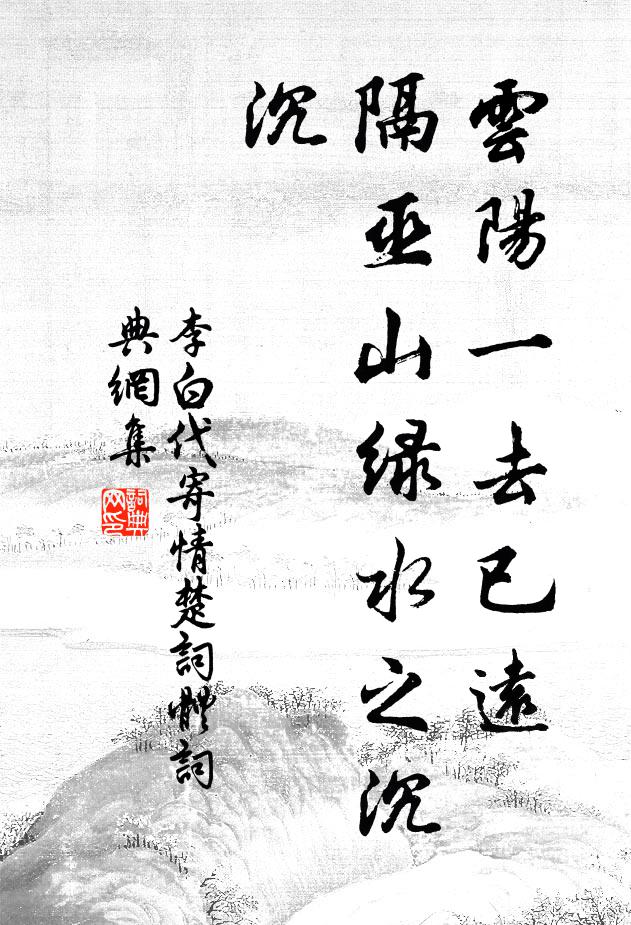 雲陽一去已遠
隔巫山绿水之沉
沉
李白代寄情楚詞體詞
典網集
詞典
网印